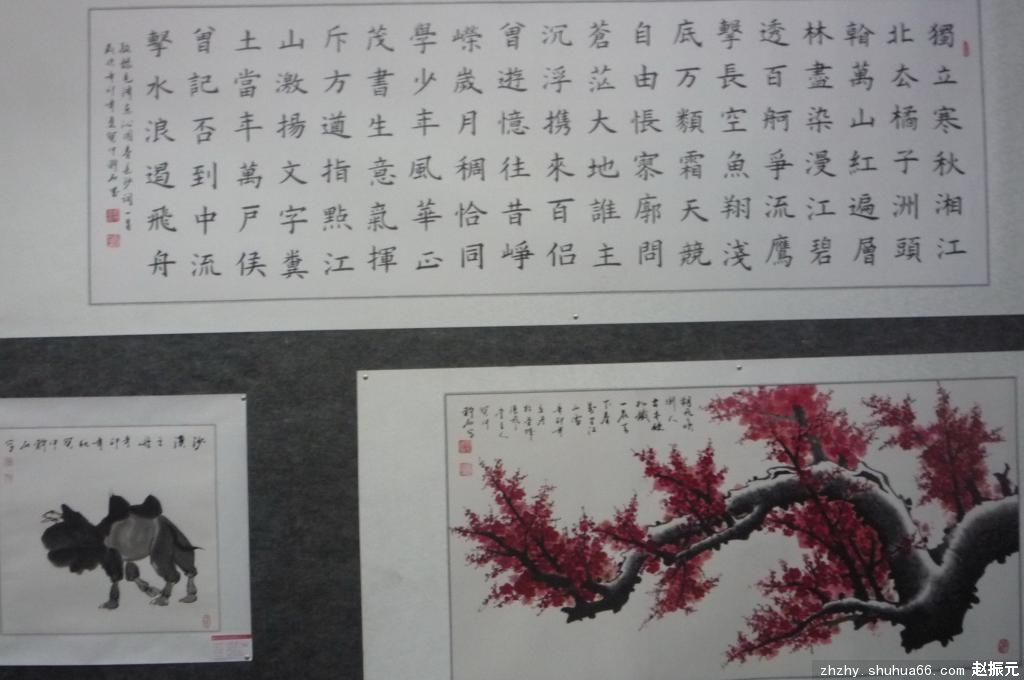 獨立寒秋湘江
北厺橘子洲頭
看萬山紅遍層
林盡染漫江碧
透百舸爭流鷹
擊長空魚翔淺
底万類霜天競
自由悵寥廓問
蒼茫大地誰主
沉浮携來百侣
曾遊憶往昔崢
嶸歲月稠恰同
學少年風華正
茂書生意氣揮
斥方遒指點江
山激揚文字糞
土當年萬戶侯
曾記否到中流
擊水浪遏飛舟
敬録毛澤東沁園春長沙詞一首
沙漠之舟
zhzhy.shuhua66.com 赵振元